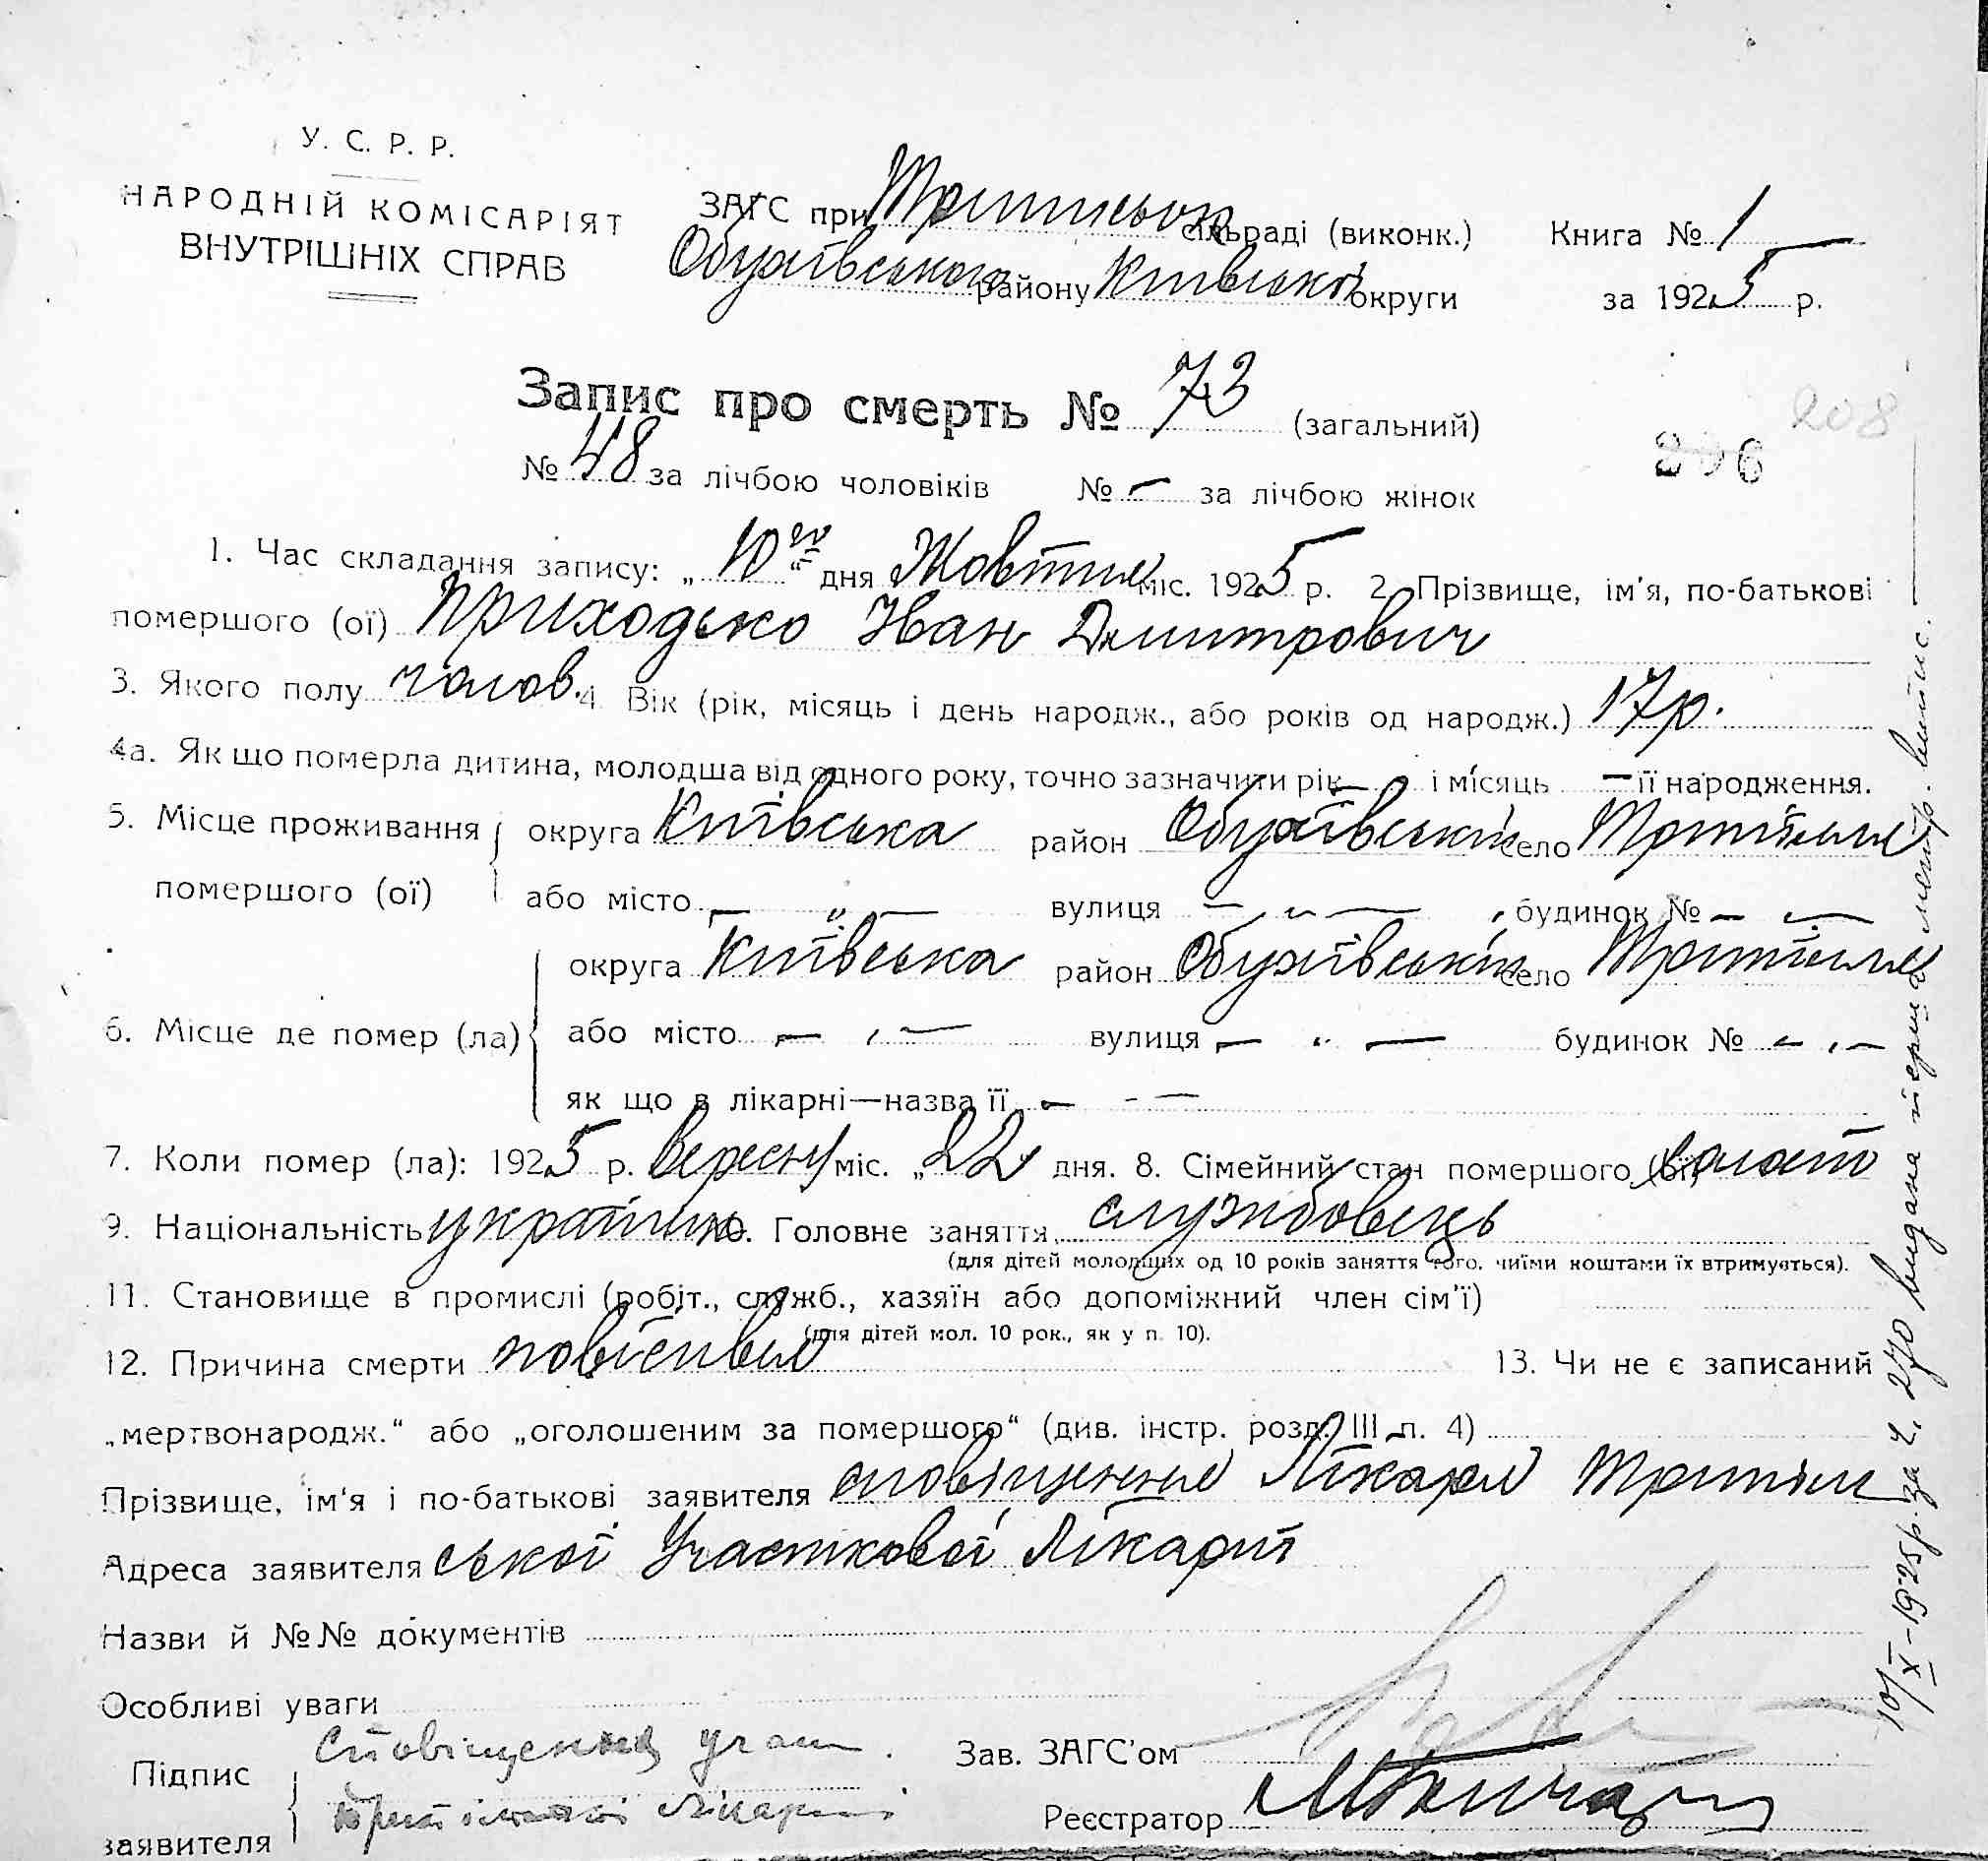 У. С. Р. Р.
НАРОДНІЙ КОМІСАРІЯТ
ВНУТРІШНІХ СПРАВ
ЗАГС при Трипільск сільраді (виконк.) Книга № 1
Обухівського району Київської округи за 1925 р.
Запис про смерть № 73 (загальний)
208
206
№ 48 за лічбою чоловіків № — за лічбою жінок
1. Час складання запису: „10го“ дня Жовтня міс. 1925 р. 2. Прізвище, ім'я, по-батькові
помершого (ої) Приходько Іван Дмитрович
3. Якого полу чолов. 4. Вік (рік, місяць і день народж., або років од народж.) 17 р.
4а. Як що померла дитина, молодша від одного року, точно зазначити рік — і місяць — її народження.
5. Місце проживання округа Київська район Обухівський село Трипілля
помершого (ої) або місто — „ — вулиця — „ — будинок № — „ —
округа Київська район Обухівський село Трипілля
6. Місце де помер (ла) або місто — „ — вулиця — „ — будинок № — „ —
як що в лікарні—назва її — - —
7. Коли помер (ла): 1925 р. вересня міс. „22 дня. 8. Сімейний стан помершого (ої)
9. Національність українець 10. Головне заняття службовець
(для дітей молодших од 10 років заняття того, чиїми коштами їх втримується).
11. Становище в промислі (робіт., служб., хазяїн або допоміжний член сім'ї)
(для дітей мол. 10 рок., як у п. 10).
12. Причина смерти повісився 13. Чи не є записаний
„мертвонародж.“ або „оголошеним за помершого“ (див. інстр. розд. III п. 4)
Прізвище, ім'я і по-батькові заявителя сповіщення Лікаря Трипіль
Адреса заявителя ської Участкової Лікарні
Назви й №№ документів
Особливі уваги
Підпис заявителя Сповіщення участ.
Трипільської лікарні
Зав. ЗАГС'ом
Реєстратор
10/X-1925 р. за ч. 270 видана перша метр. випис.